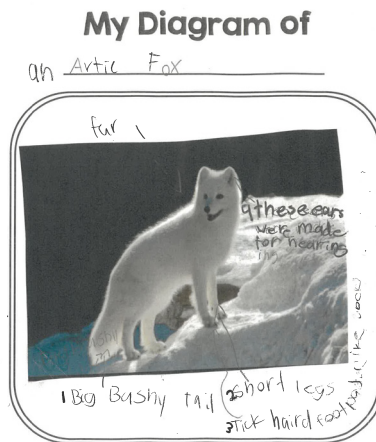 My Diagram of
an Artic Fox
fur
4 these ears
were made
for hearring
1 Big Bushy tail
2 short legs
3 Tick haird footpads like